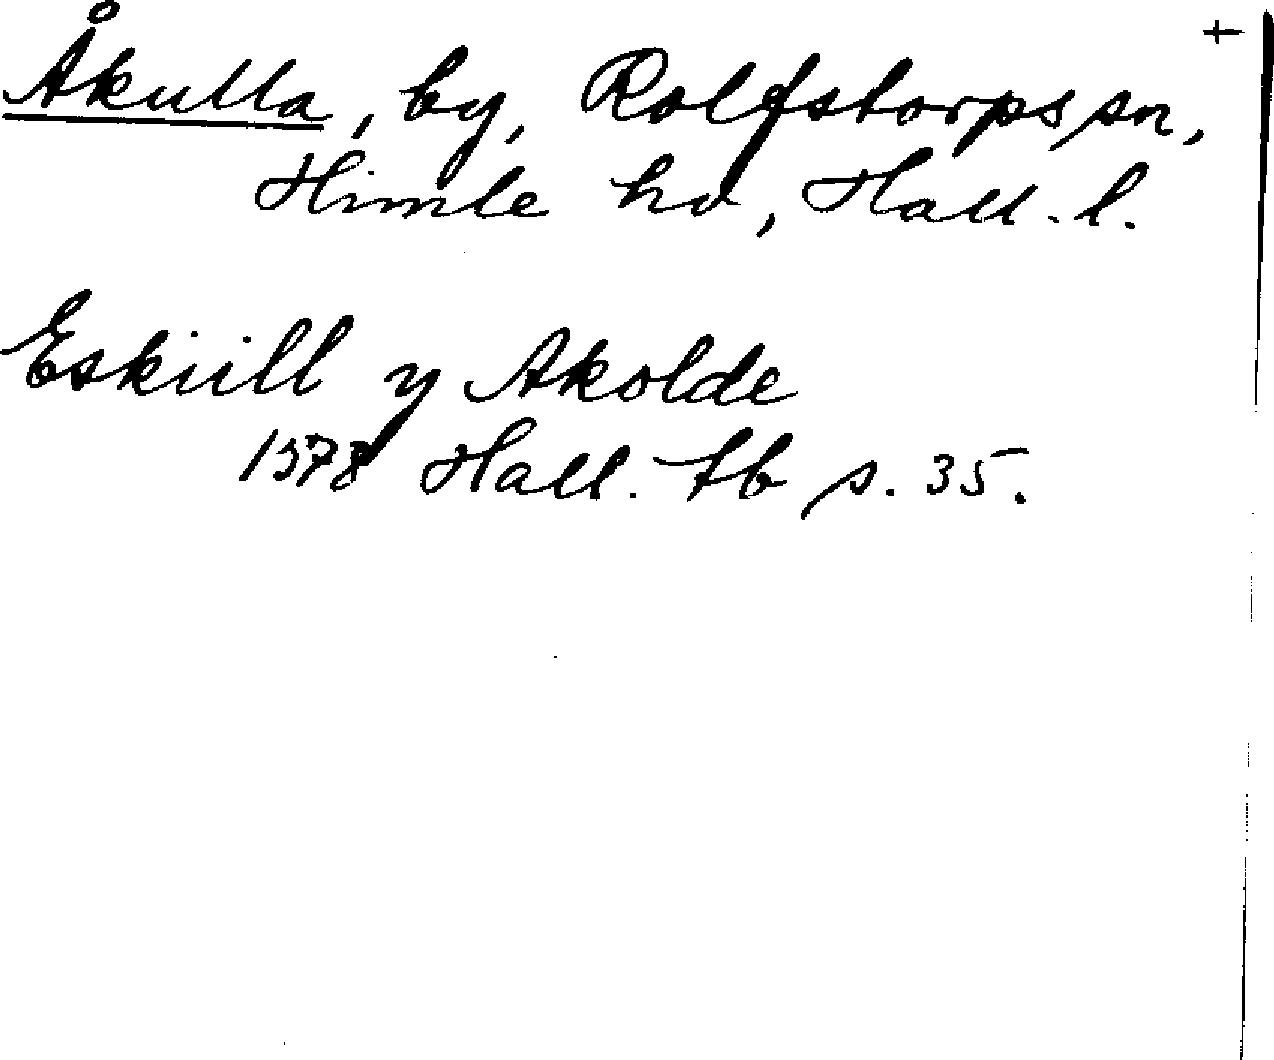 Åkulla, by, Rolfstorps sn, +
Himle hd, Hall. l.
Eskiill y Akolde
1578 Hall. tb s. 35.